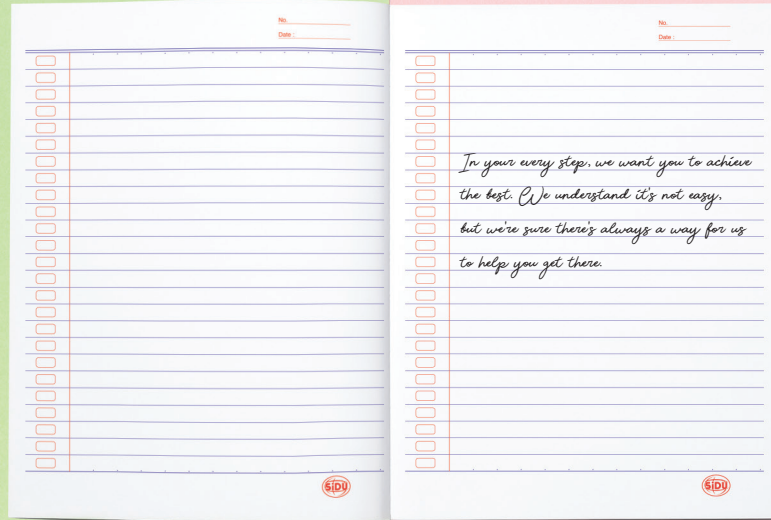 No.
Date :
No.
Date :
In your every step, we want you to achieve
the best. We understand it's not easy,
but we're sure there's always a way for us
to help you get there.
SiDU
SiDU